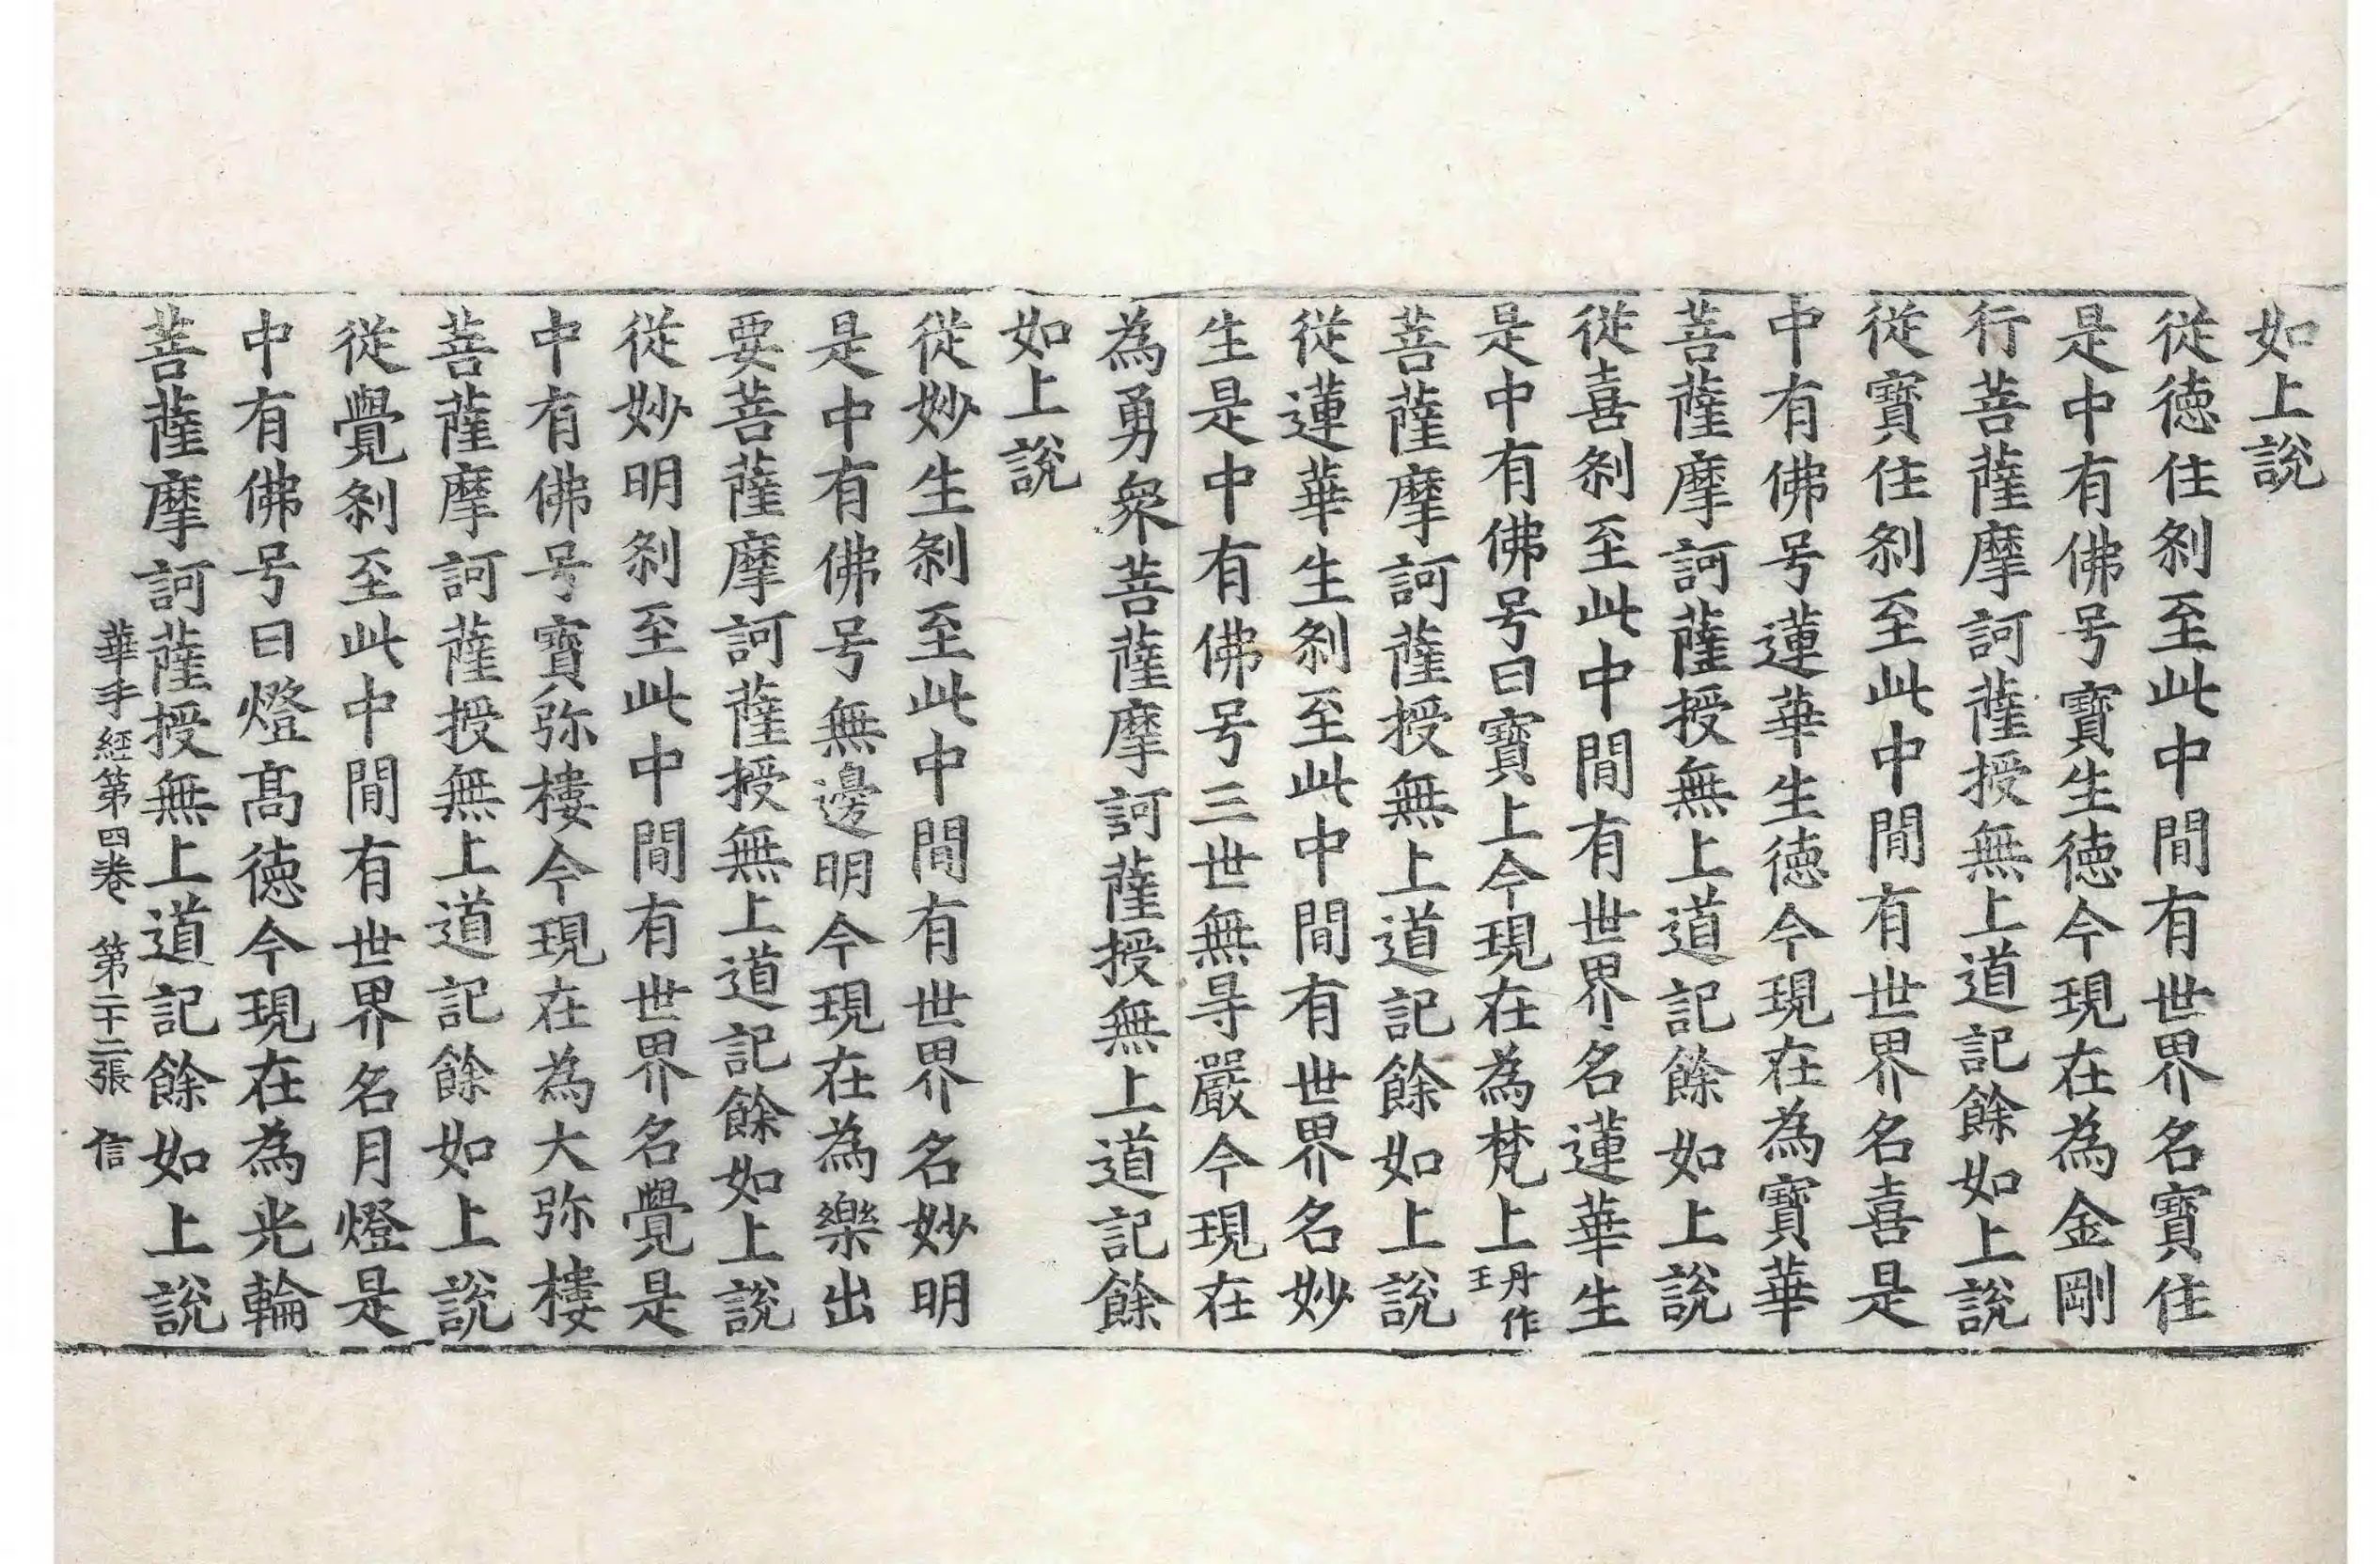 如上說
從德住刹至此中間有世界名寶住
是中有佛号寶生德今現在為金剛
行菩薩摩訶薩授無上道記餘如上說
從寶住刹至此中間有世界名喜是
中有佛号蓮華生德今現在為寶華
菩薩摩訶薩授無上道記餘如上說
從喜刹至此中間有世界名蓮華生
是中有佛号曰寶上今現在為梵上丹作王
菩薩摩訶薩授無上道記餘如上說
從蓮華生刹至此中間有世界名妙
生是中有佛号三世無㝵嚴今現在
為勇衆菩薩摩訶薩授無上道記餘
如上說
從妙生刹至此中間有世界名妙明
是中有佛号無邊明今現在為樂出
要菩薩摩訶薩授無上道記餘如上說
從妙明刹至此中間有世界名覺是
中有佛号寶弥樓今現在為大弥樓
菩薩摩訶薩授無上道記餘如上說
從覺刹至此中間有世界名月燈是
中有佛号曰燈髙德今現在為光輪
菩薩摩訶薩授無上道記餘如上說
華手經第四卷 第二十二張 信